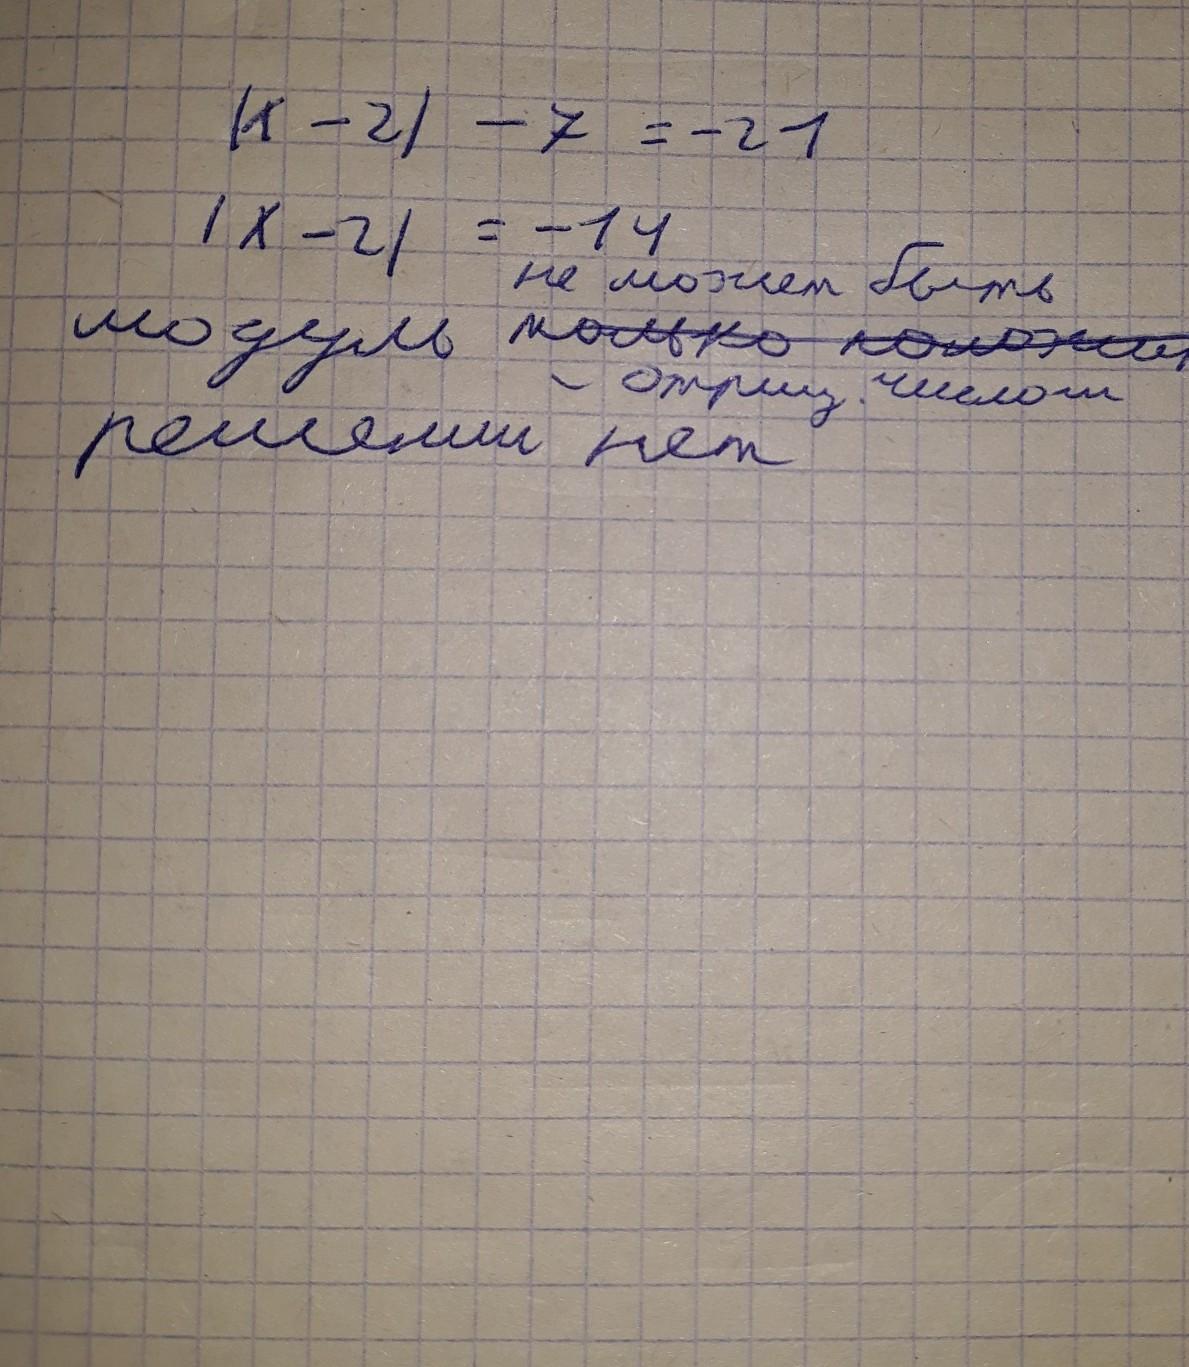 |x - 2| - 7 = -21
|x - 2| = -14
не может быть
модуль только положит
- отриц. числом
решений нет